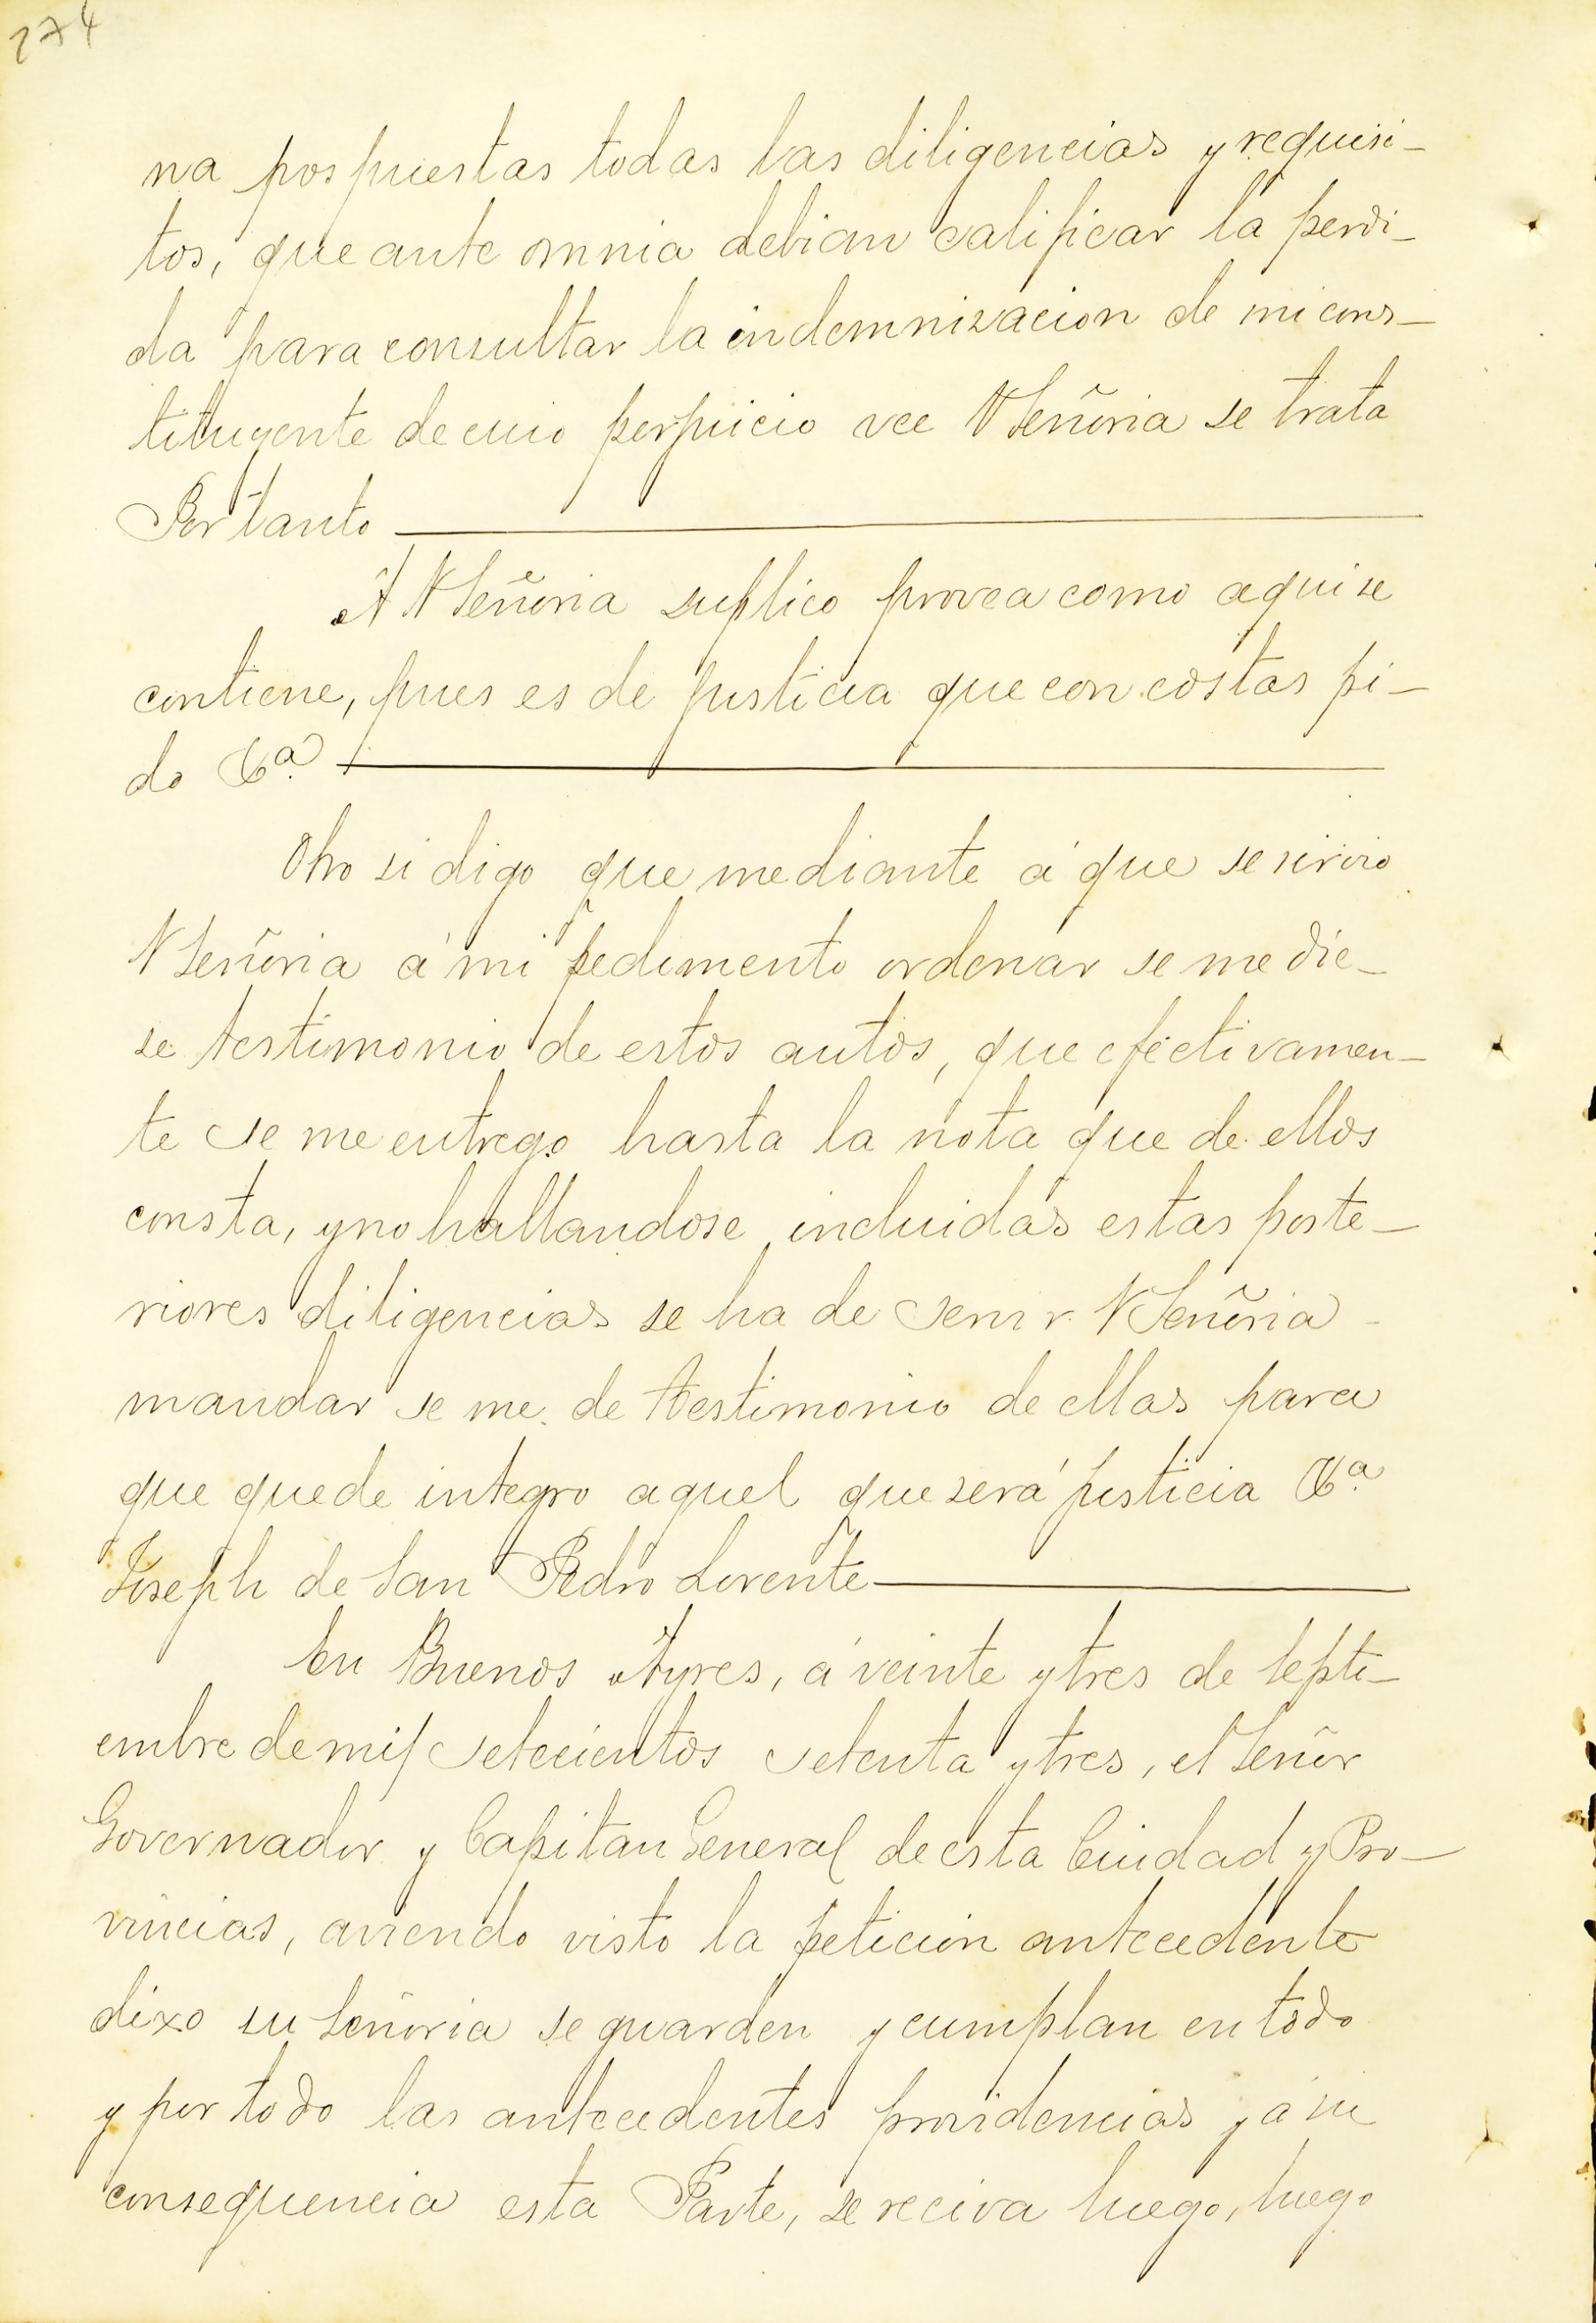 274
na pospuestas todas las diligencias y requisi-
tos, que ante omnia debian calificar la perdi-
da para consultar la indemnizacion de mi cons-
tituyente de cuio perjuicio vee V Señoria se trata
Por tanto
A V Señoria suplico provea como aqui se
contiene, pues es de justicia que con costas pi-
do &ª
Otro si digo que mediante á que se sirvio
V Señoria á mi pedimento ordenar se me die-
se testimonio de estos autos, que efectivamen-
te se me entrego hasta la nota que de ellos
consta, y no hallandose incluidas estas poste-
riores diligencias se ha de servir V Señoria
mandar se me de testimonio de ellas para
que quede integro aquel que será justicia &ª
Joseph de San Pedro Lorente
En Buenos Ayres, á veinte y tres de Septi-
embre de mil setecientos setenta y tres, el Señor
Governador y Capitan General de esta Ciudad y Pro-
vincias, aviendo visto la peticion antecedente
dixo su Señoria se guarden y cumplan en todo
y por todo las antecedentes providencias y á su
consequencia esta Parte, se reciva luego, luego